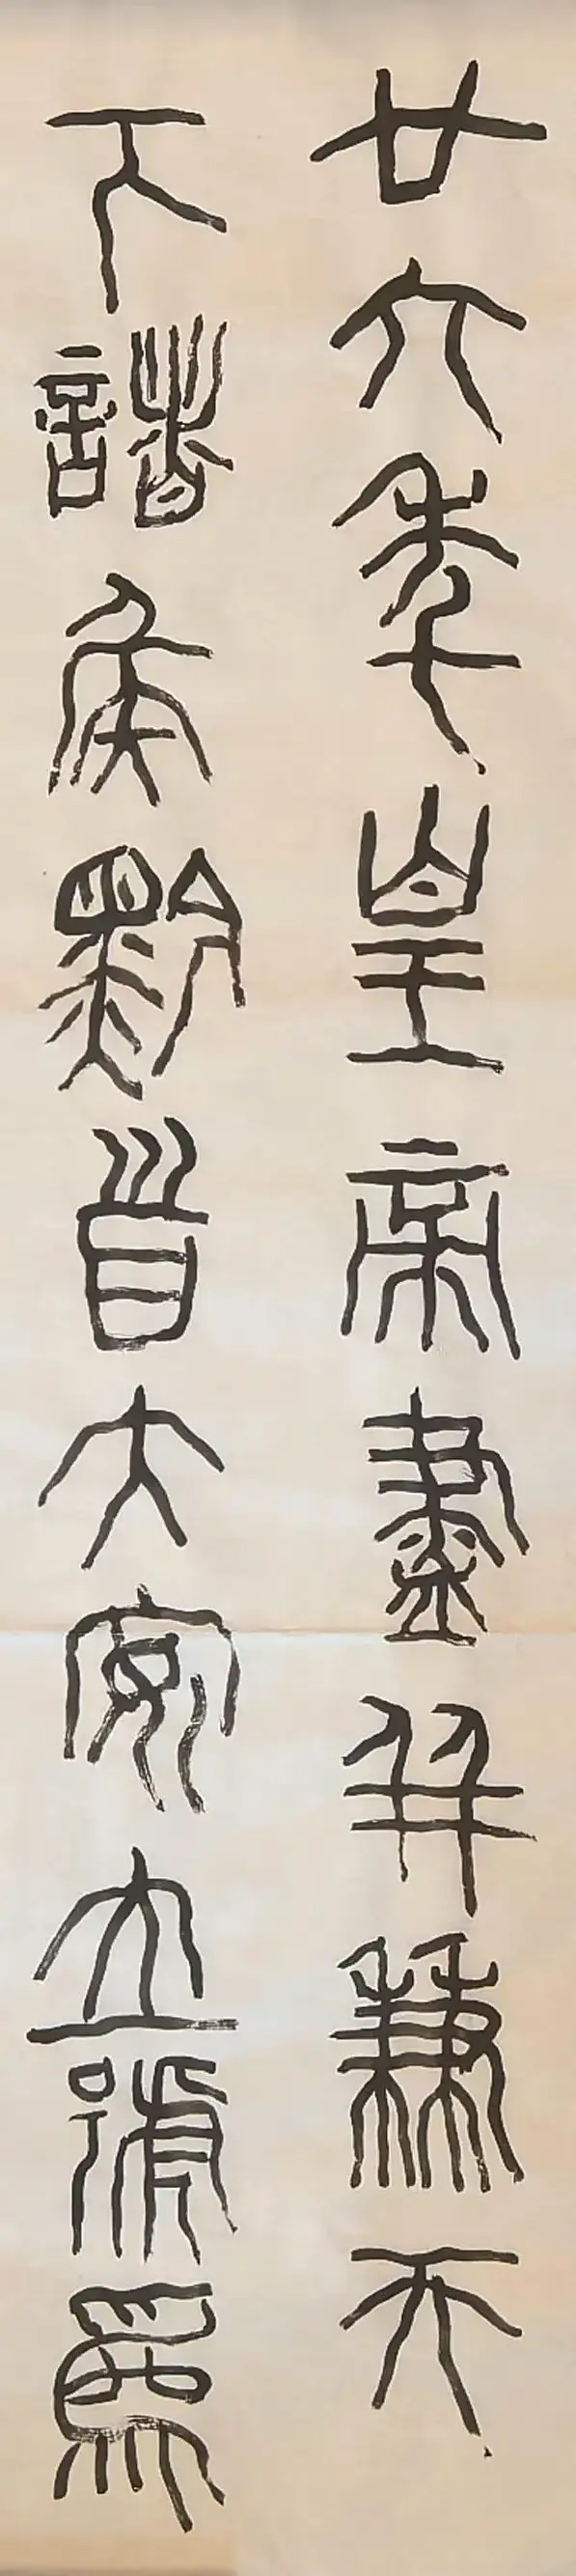 廿六年皇帝盡并兼天
下諸矦黔首大安立號爲